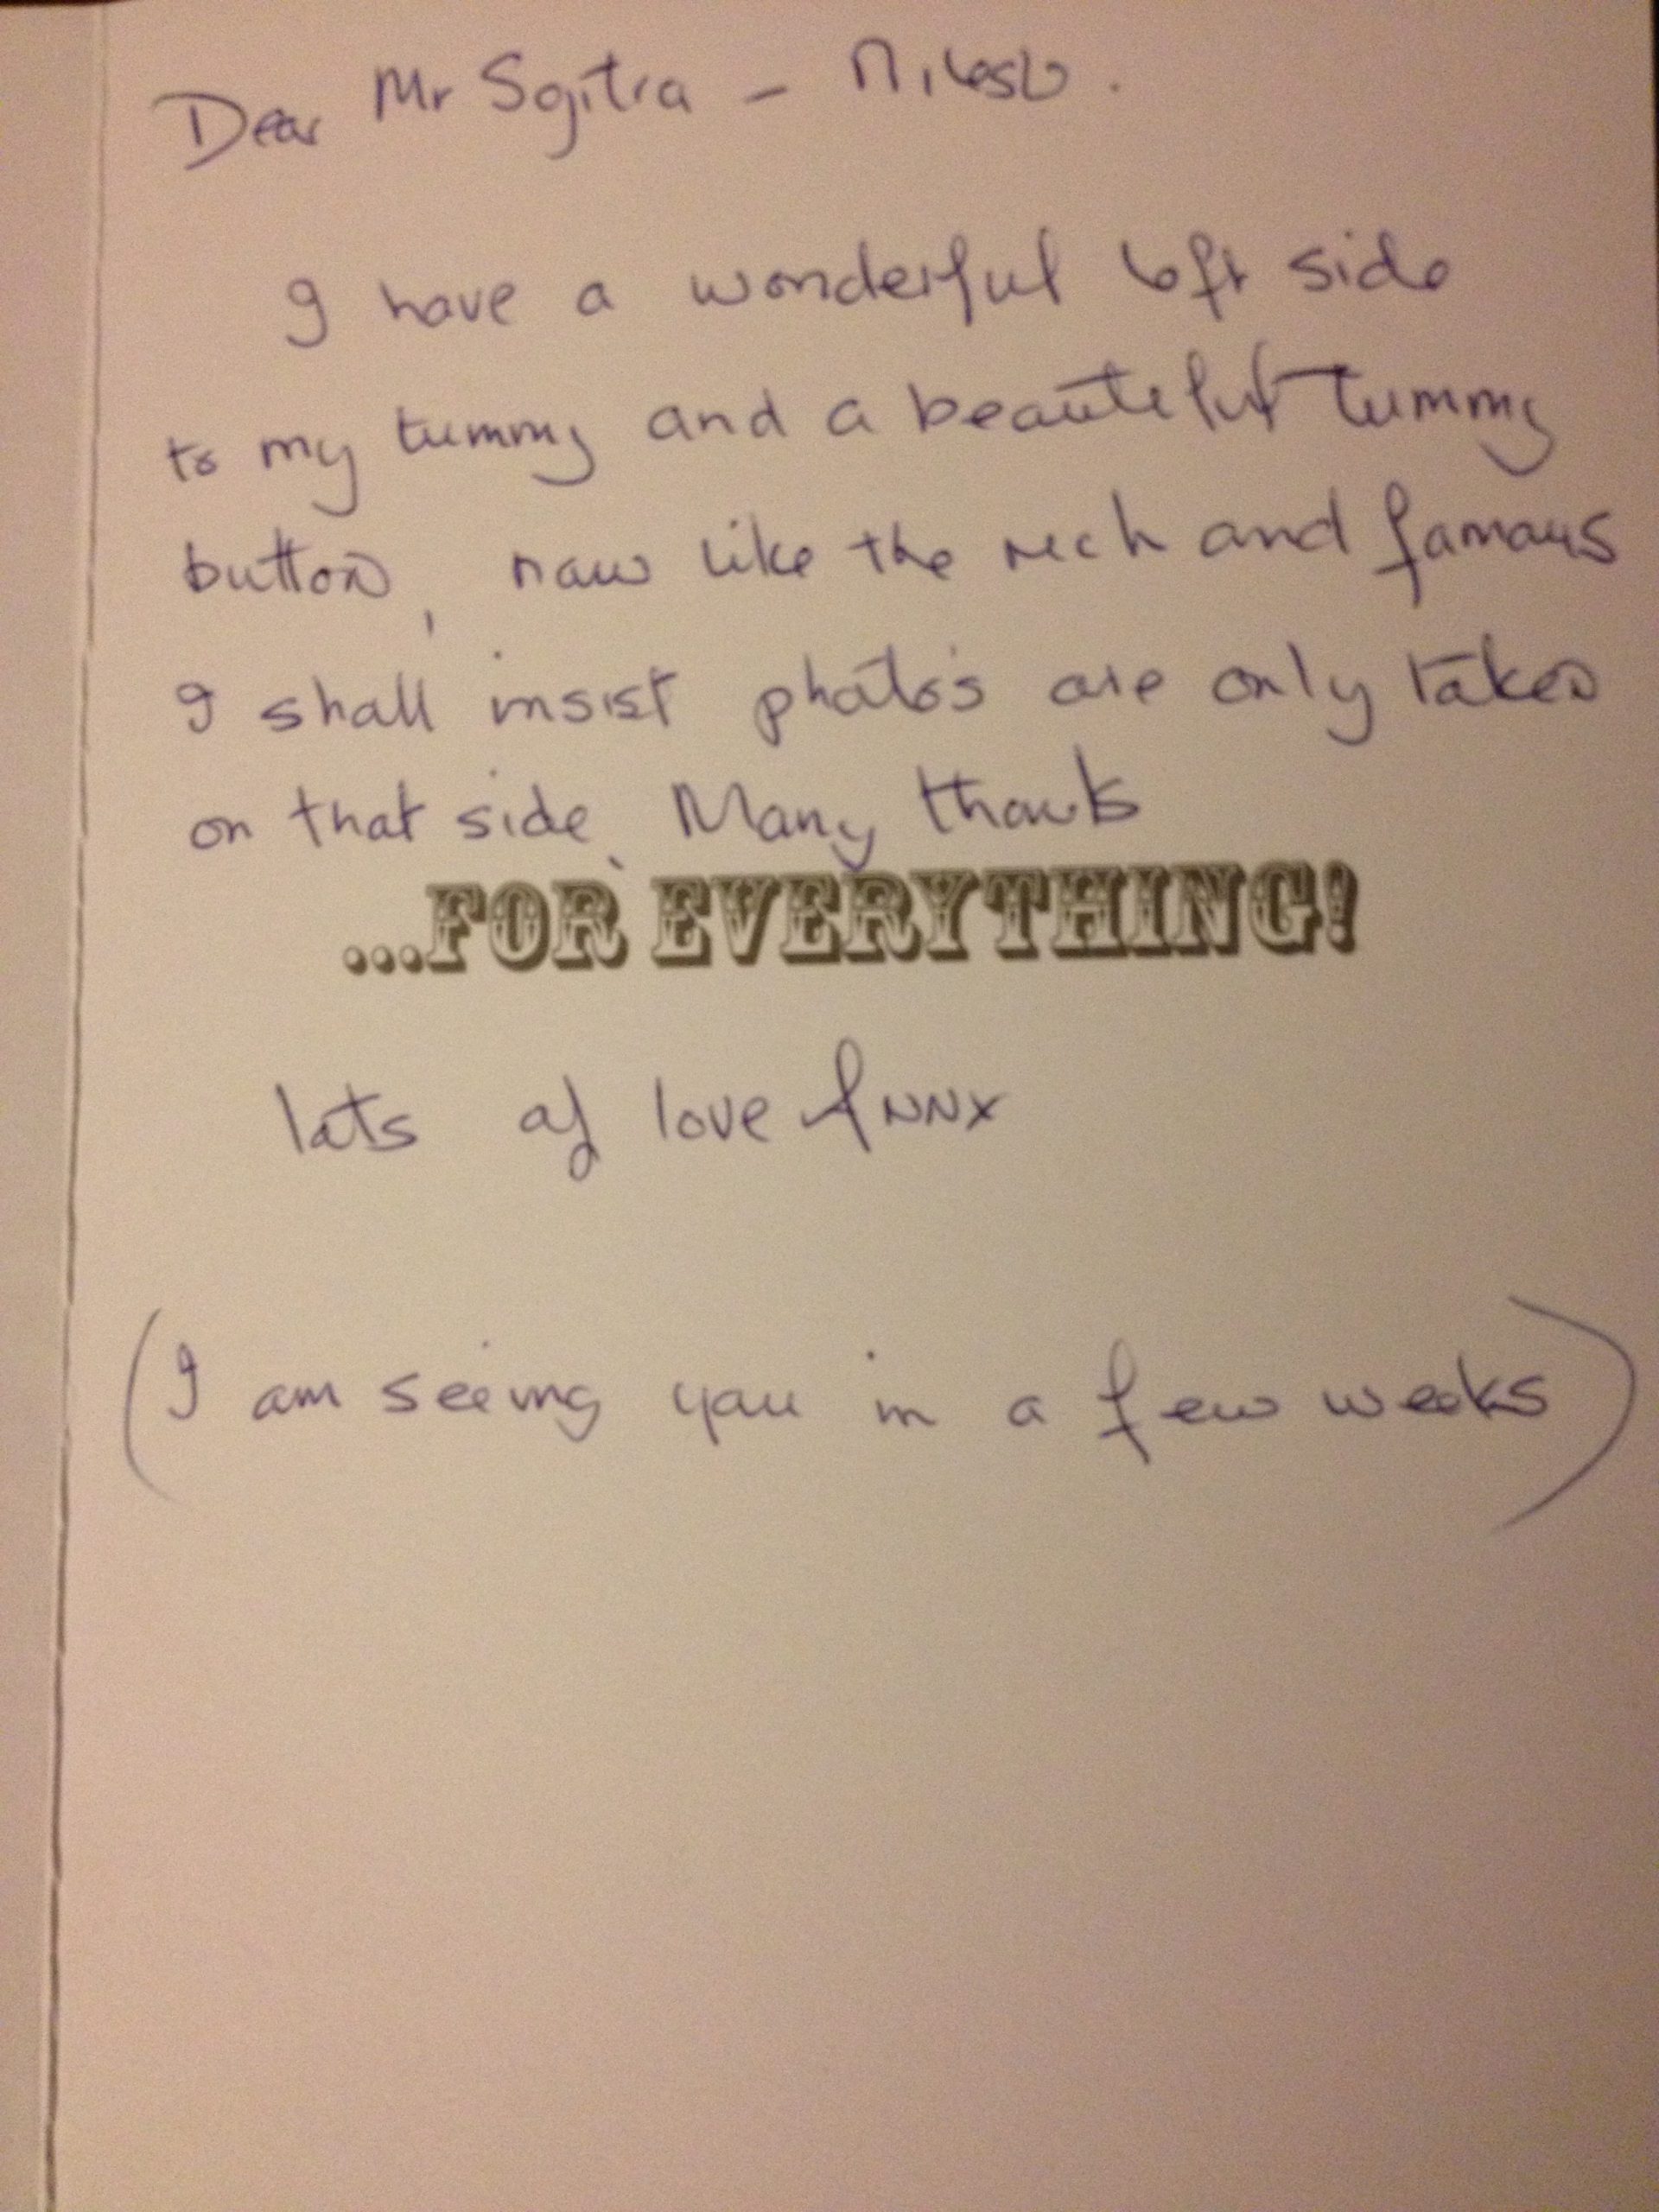 Dear Mr Sojitra - Nilesh.
I have a wonderful left side
to my tummy and a beautiful tummy
button, now like the rich and famous
I shall insist photo's are only taken
on that side. Many thanks
...FOR EVERYTHING!
lots of love ANNX
(I am seeing you in a few weeks)